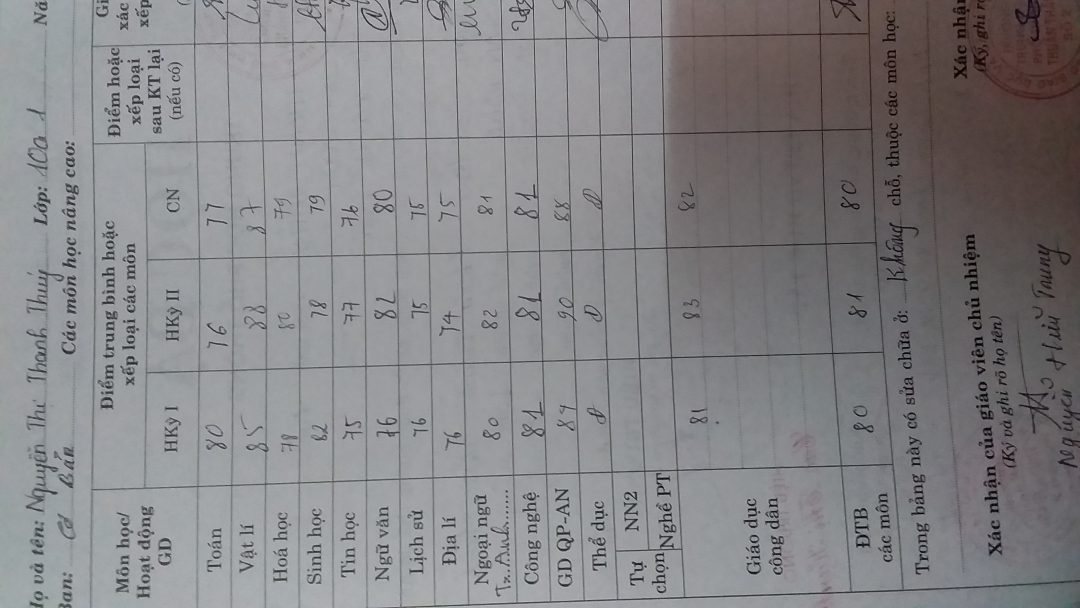 Họ và tên: Nguyễn Thị Thanh Thuý Lớp: 10a1 Nă
Ban: Cơ Bản Các môn học nâng cao:
Môn học/ Hoạt động GD
Điểm trung bình hoặc xếp loại các môn
Điểm hoặc xếp loại sau KT lại (nếu có)
Gi
xác
xếp
HKỳ I HKỳ II CN
Toán 80 76 77
Vật lí 85 88 87
Hoá học 78 80 79
Sinh học 82 78 79
Tin học 75 77 76
Ngữ văn 76 82 80
Lịch sử 76 75 75
Địa lí 76 74 75
Ngoại ngữ 80 82 81
T.. Anh......
Công nghệ 81 81 81
GD QP-AN 89 90 88
Thể dục Đ Đ Đ
Tự chọn
NN2
Nghề PT
Giáo dục công dân 81 83 82
ĐTB các môn 80 81 80
Trong bảng này có sửa chữa ở: Không chỗ, thuộc các môn học:
Xác nhận của giáo viên chủ nhiệm
(Ký và ghi rõ họ tên)
Nguyễn Hữu Trung
Xác nhận
(Ký, ghi rõ